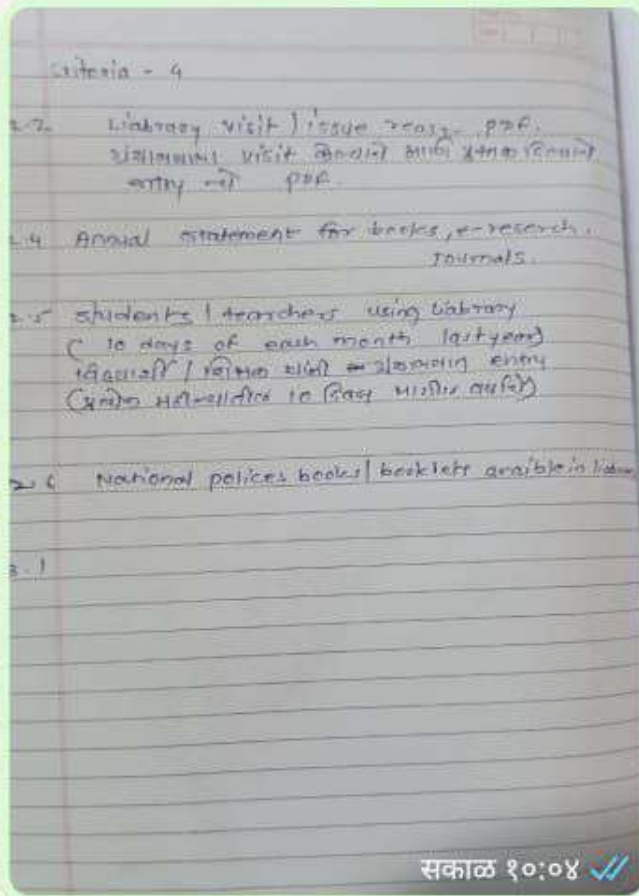 Criteria - 4
2.2 Liabrary visit / issue PDF.
visit केल्याचे आणि पुस्तक दिल्याचे
PDF.
2.4 Annual statement for books, e-reserch,
Journals.
2.5 students / tearchers using Liabrary
( 10 days of each month last year)
विद्यार्थी / शिक्षक यांनी entry
(प्रत्येक महिन्यातील 10 दिवस मागील वर्षाचे)
2.6 National polices books / booklets avaible in
3.1
सकाळ १०:०४